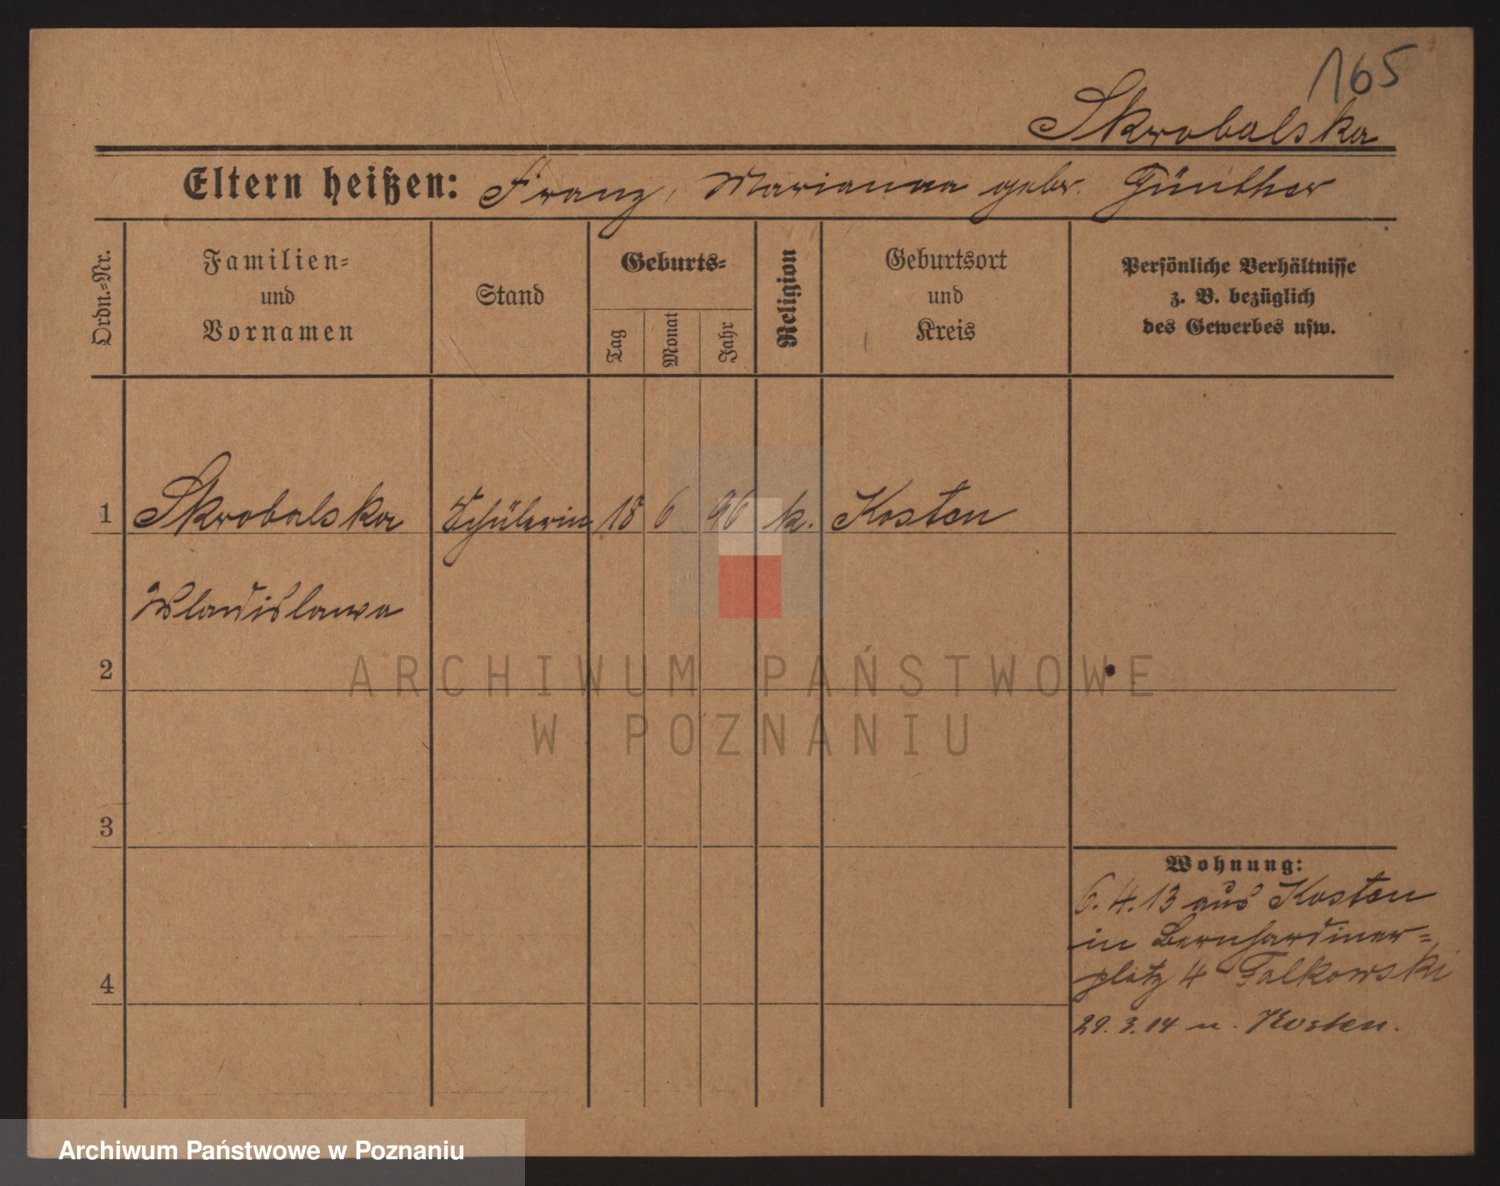 165
Skrobalska
Eltern heißen: Franz, Marianna gebr. Günther
Ordn.-Nr.
Familien-
und
Vornamen
Stand
Geburts-
Tag
Monat
Jahr
Religion
Geburtsort
und
Kreis
Persönliche Verhältnisse
z. B. bezüglich
des Gewerbes usw.
1 Skrobalska Schülerin 18 6 96 k. Kosten
Wladislawa
2
ARCHIWUM PAŃSTWOWE
W POZNANIU
3
Wohnung:
6.4.13 aus Kosten
in Bernhardiner-
platz 4 Falkowski
4
29.3.14 n. Kosten.
Archiwum Państwowe w Poznaniu